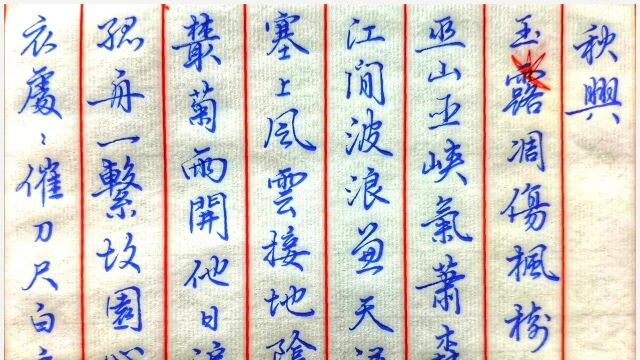 秋興
玉露凋傷楓樹
巫山巫峽氣蕭森
江間波浪兼天
塞上風雲接地陰
叢菊兩開他日
孤舟一繫故園心
衣處〻催刀尺白